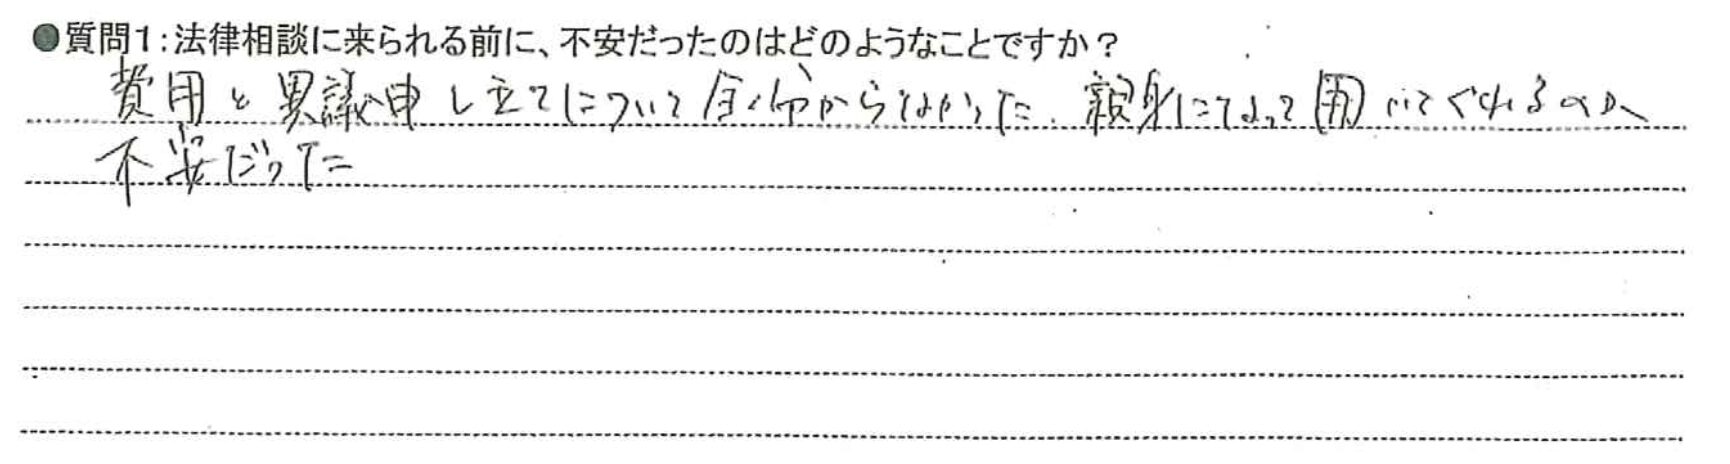 ●質問1:法律相談に来られる前に、不安だったのはどのようなことですか？
費用と異議申し立てについて全く分からなかった. 親身になって聞いてくれるのか
不安だった